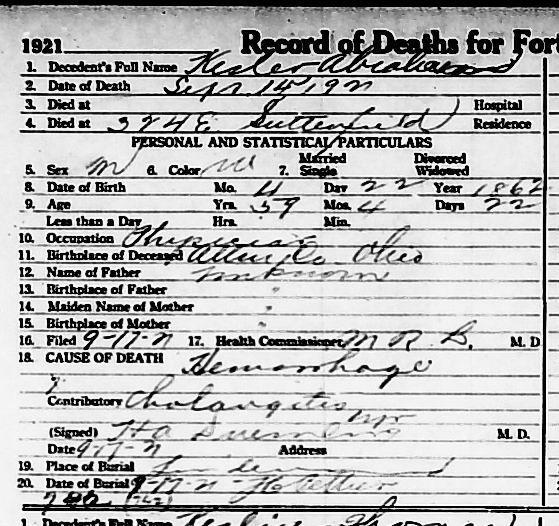 1921 Record of Deaths for Fort
1. Decedent's Full Name Kesler Abraham
2. Date of Death Sept. 14, 1921
3. Died at Hospital
4. Died at 324 E. Suttenfield Residence
PERSONAL AND STATISTICAL PARTICULARS
5. Sex M 6. Color W 7. Married Single Divorced Widowed
8. Date of Birth Mo. 4 Day 22 Year 1862
9. Age Yrs. 59 Mos. 4 Days 22
Less than a Day Hrs. Min.
10. Occupation Physician
11. Birthplace of Deceased Co. Ohio
12. Name of Father Unknown
13. Birthplace of Father "
14. Maiden Name of Mother "
15. Birthplace of Mother "
16. Filed 9-17-21 17. Health Commissioner M. D.
18. CAUSE OF DEATH Hemorrhage
Contributory Cholangitis
(Signed) H. A. M. D.
Date 9-17-21 Address
19. Place of Burial Lindenwood
20. Date of Burial 9-17-21
1. Decedent's Full Name